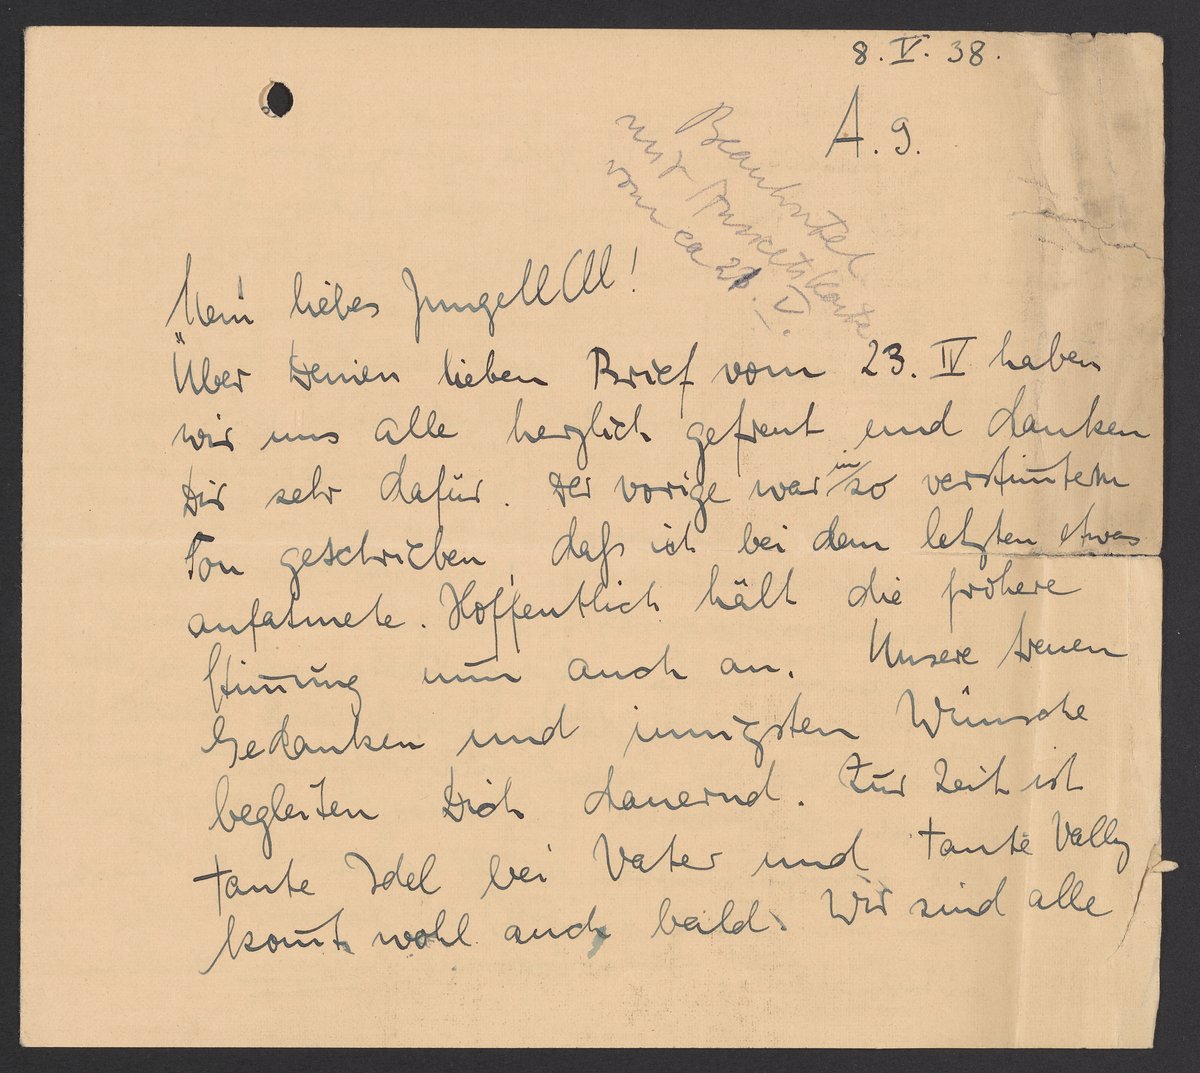 8. V. 38.
A. g.
Beantwortet
mit Ansichtskarte
vom ca 21. V.
Mein liebes Jungelll!
Über Deinen lieben Brief vom 23. IV haben
wir uns alle herzlich gefreut und danken
Dir sehr dafür. Der vorige war in so verstim̅tem
Ton geschrieben, daß ich bei dem letzten etwas
aufatmete. Hoffentlich hält die frohere
Stim̅ung nun auch an. Unsere treuen
Gedanken und innigsten Wünsche
begleiten Dich dauernd. Zur Zeit ist
Tante Idel bei Vater und Tante Vally
kom̅t wohl auch bald. Wir sind alle